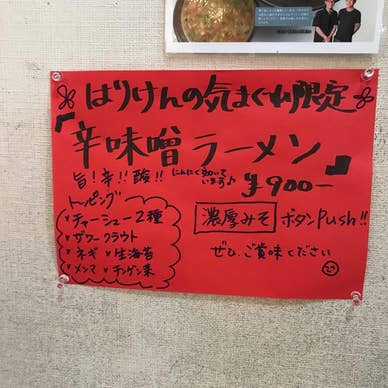 はりけんの気まぐれ限定
『辛味噌ラーメン』
旨!辛!!酸!! にんにく効いています♪ ¥900-
トッピング
・チャーシュー2種
・ザワークラウト
・ネギ ・生海苔
・メンマ ・チンゲン菜
濃厚みそ ボタンPush!!
ぜひ、ご賞味ください